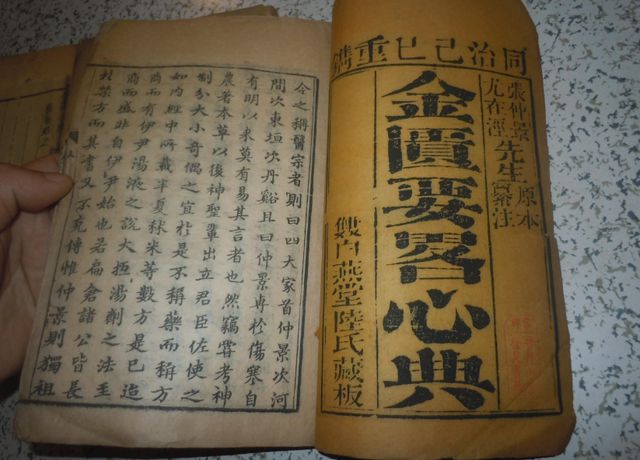 同治己巳重鐫
張仲景
尤在涇
先生
原本
纂注
金匱要畧心典
雙白燕堂陸氏藏板
今之稱醫宗者則曰四大家首仲景次河
間次東垣次丹谿且曰仲景專於傷寒自
有明以來莫有易其言者也然竊嘗考神
農著本草以後神聖輩出立君臣佐使之
制分大小奇偶之宜於是不稱藥而稱方
如內經中所載半夏秫米等數方是已迨
商而有伊尹湯液之說大抵湯劑之法至
商而盛非自伊尹始也若扁倉諸公皆長
於禁方而其書又不克傳惟仲景則獨祖